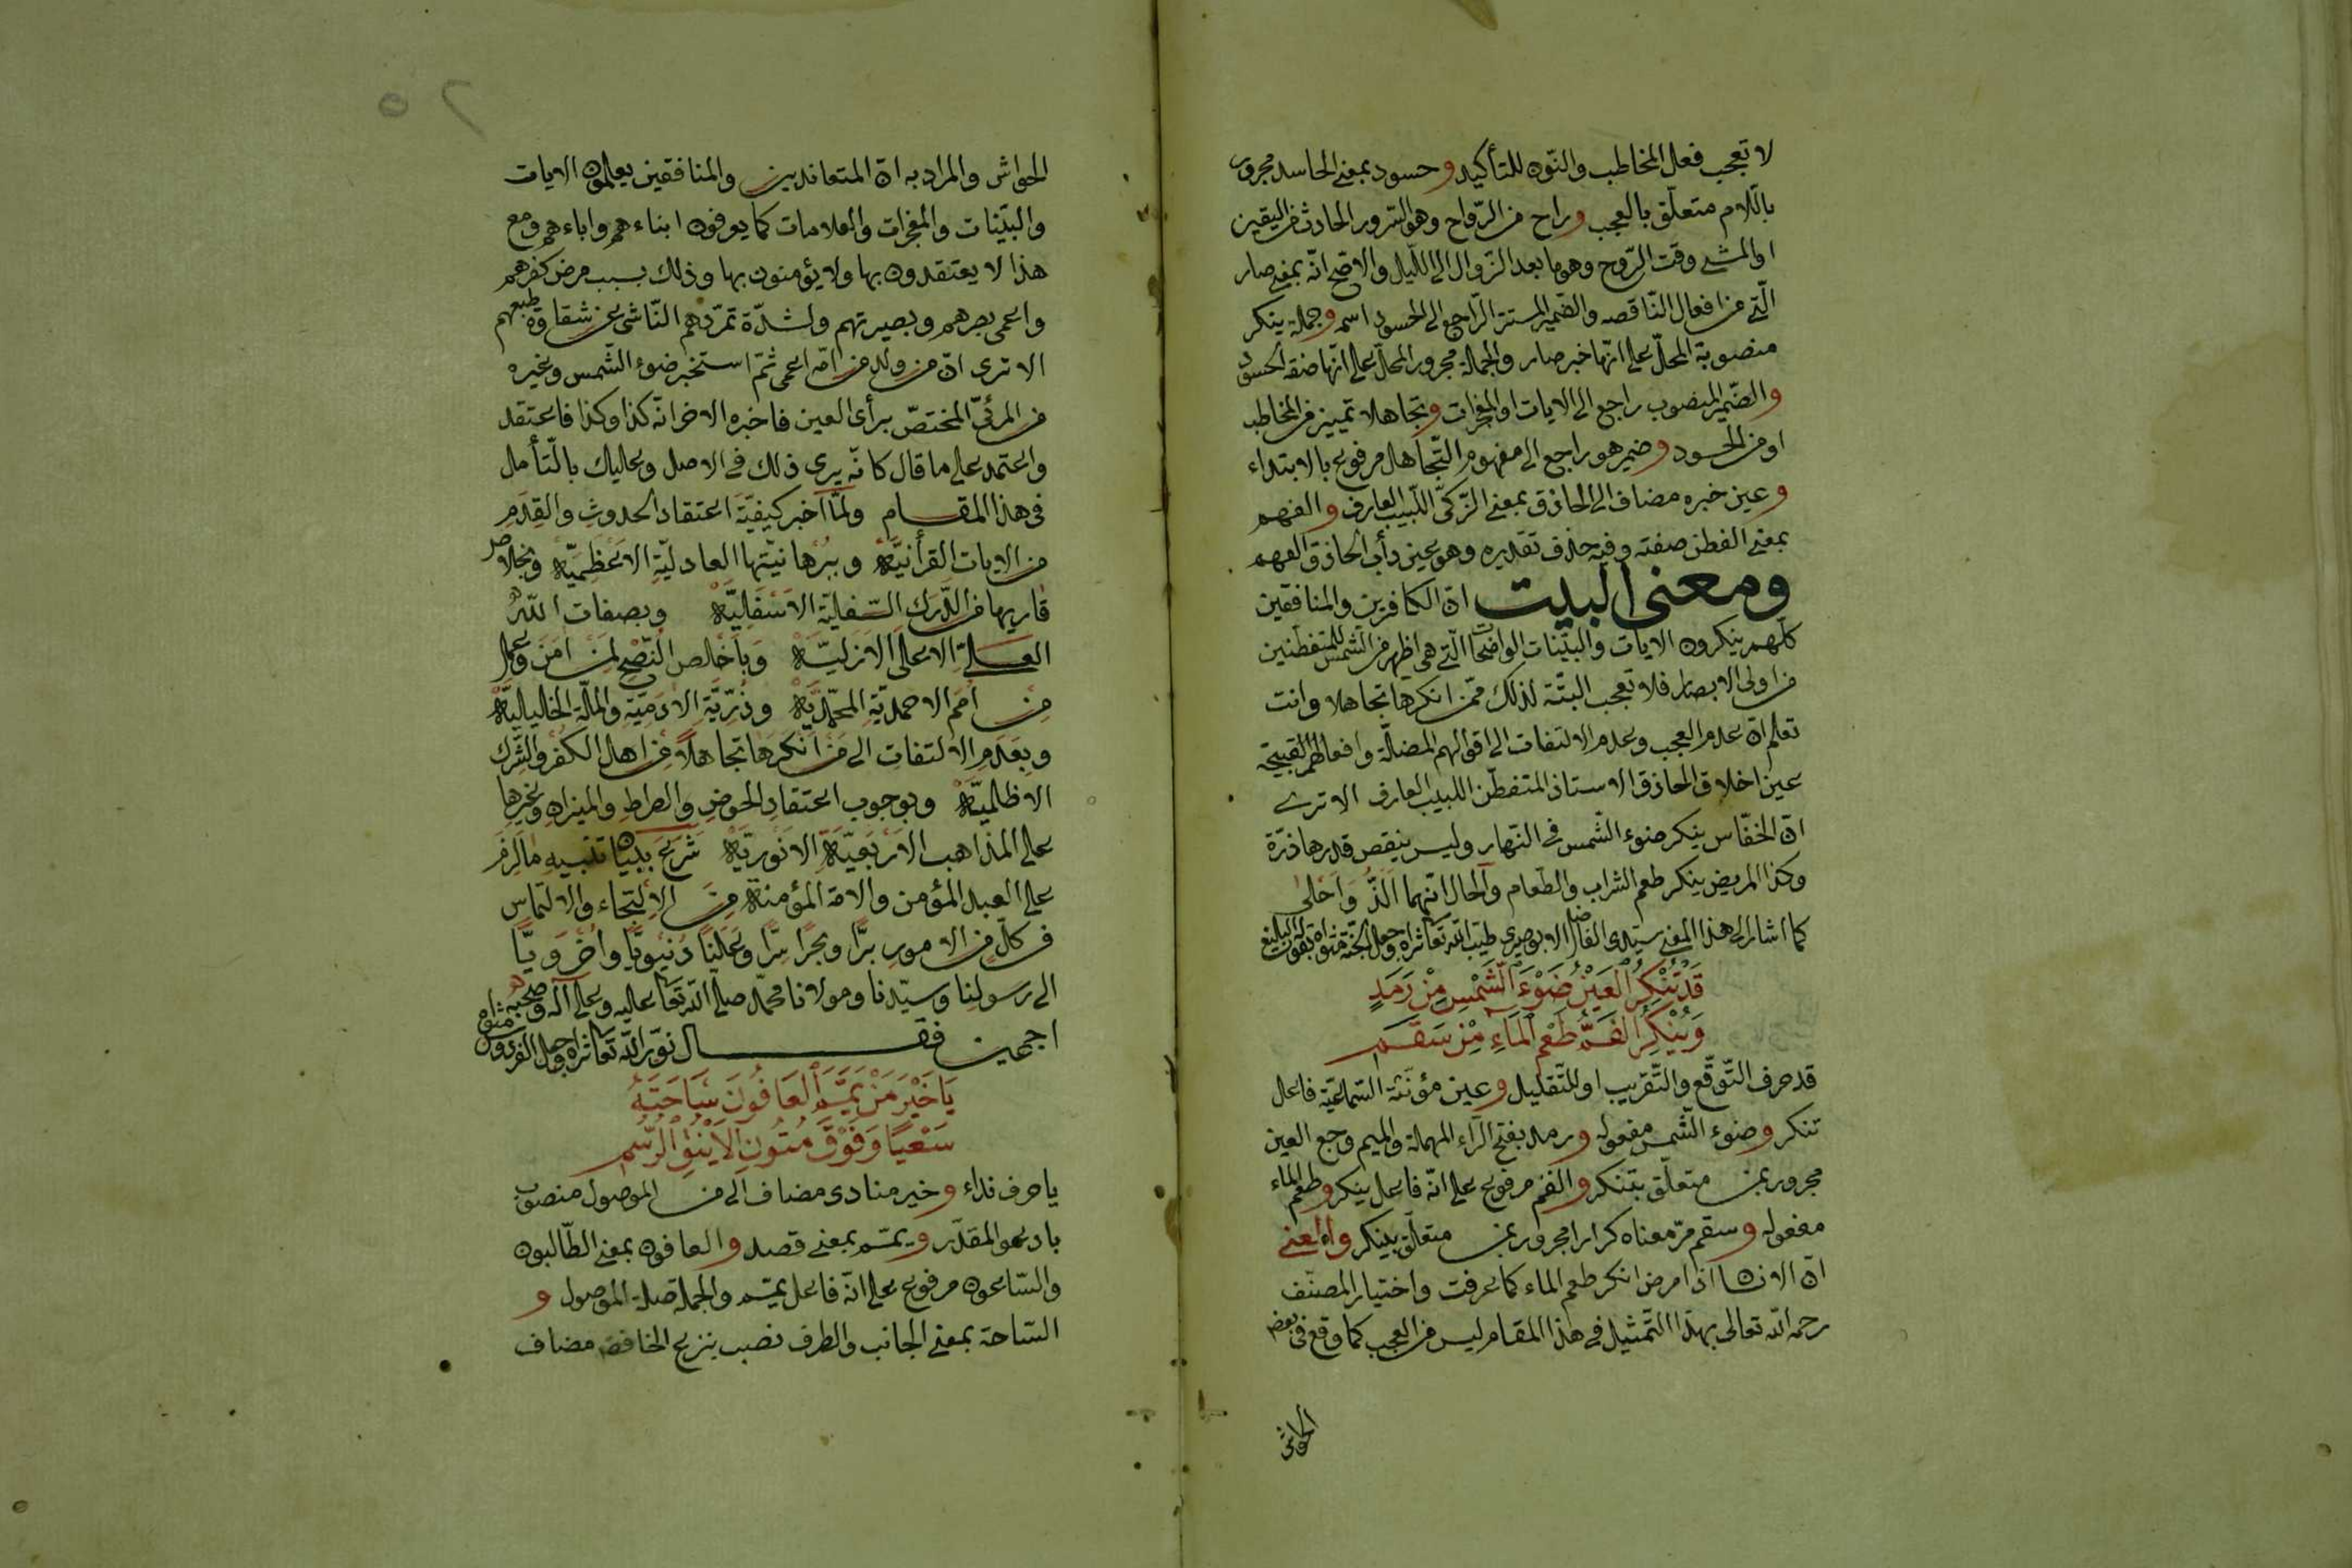 لا تعجب فعل المخاطب والنّون للتأكيد وحسود بمعنى الحاسد مجرور
باللّام متعلّق بالعجب وراح من الرّواح وهو السّرور الحادث من اليقين
او المشى وقت الرّوح وهو ما بعد الزّوال الى اللّيل والاصّح انّه بمعنى صار
الّتى من افعال النّاقصه والضّمير المستتر الرّاجع الى الحسود اسمه وجملة ينكر
منصوبة المحلّ على انّها خبر صار والجملة مجرور المحلّ على انّها صفة الحسود
والضّمير المنصوب راجع الى الايات او المعجزات وتجاهلا تمييز من المخاطب
او من الحسود وضمير هو راجع الى مفهوم التّجاهل مرفوع بالابتداء
وعين خبره مضاف الى الحاذق بمعنى الزّكىّ اللّبيب العارف والفهم
بمعنى الفطن صفته وفيه حذف تقديره وهو عين دأب الحاذق الفهم
ومعنى البيت انّ الكافرين والمنافقين
كلّهم ينكرون الايات والبيّنات الواضحات الّتى هى اظهر من الشّمس للمتفطّنين
من اولى الابصار فلا تعجب البتّة لذلك ممّن انكرها تجاهلا وانت
تعلم انّ عدم العجب وعدم الالتفات الى اقوالهم المضلّة وافعالهم القبيحة
عين اخلاق الحاذق الاستاذ المتفطّن اللبيب العارف الا ترى
انّ الخفّاس ينكر ضوء الشّمس فى النّهار وليس ينقص قدرها ذرّة
وكذا المريض ينكر طعم الشراب والطّعام والحال انّهما الذّ واحلى
كما اشار الى هذا المعنى سيّدى الفاضل الابوصيرى طيّب الله تعالى ثراه وجعل الجنّة مثواه بقوله البليغ
قَدْ تُنْكِرُ الْعَيْنُ ضَوْءَ الشَّمْسِ مِنْ رَمَدٍ
وَيُنْكِرُ الْفَمُّ طَعْمَ الْمَاءِ مِنْ سَقَمِ
قد حرف التّوقّع والتّقريب او للتّقليل وعين مؤنّثة السّماعيّة فاعل
تنكر وضوء الشّمس مفعوله ورمد بفتح الرّاء المهملة والميم وجع العين
مجرور بمن متعلّق بتنكر والفم مرفوع على انّه فاعل ينكر وطعم الماء
مفعوله وسقم مرّ معناه كرارا مجرور بمن متعلّق بينكر والمعنى
انّ الانسان اذا مرض انكر طعم الماء كما عرفت واختيار المصنّف
رحمه الله تعالى بهذا التّمثيل فى هذا المقام ليس من العجب كما وقع فى بعض
الحواش
الحواش والمراد به انّ المتعاندين والمنافقين يعلمون الايات
والبيّنات والمعجزات والعلامات كما يعرفون ابناءهم واباءهم ومع
هذا لا يعتقدون بها ولا يؤمنون بها وذلك بسبب مرض كفرهم
واعمى بصرهم وبصيرتهم ولشدّة تمرّدهم النّاشى عن شقاوة طبعهم
الا ترى انّ من ولد من امّه اعمى ثمّ استخبر ضوء الشّمس وغيره
من المرئىّ المختصّ برأى العين فاخبره الاخر انّه كذا وكذا فاعتقد
واعتمد على ما قال كانّه يرى ذلك فى الاصل وعليك بالتّأمل
فى هذا المقام ولمّا اخبر كيفيّة اعتقاد الحدوث والقِدَم
من الايات القرأنيّة وببرهانيّتها العادليّة الاعظميّة وبخلاص
قاريها من الدّرك السّفليّة الاسفليّة وبصفات الله
العليّة الاعلى الازليّة وباخلص النّصح لمن امن وعمل
من امم الاحمديّة المحمّديّة وذرّيّة الادميّة والملّة الخليليّة
وبعدم الالتفات الى من انكرها تجاهلاً من اهل الكفر والشّرك
الاظلميّة وبوجوب اعتقاد الحوض والصراط والميزان وغيرها
على المذاهب الاربعيّة الانوريّة شرع ببيان تنبيه ما لزم
على العبد المؤمن والامة المؤمنة من الالتجاء والالتماس
فى كلّ من الامور برّا وبحرا سرّا وعلنًا دنيويّا واخرويّا
الى رسولنا وسيّدنا ومولانا محمّد صلّى الله تعالى عليه وعلى آله وصحبه
اجمعين فقال نوّر الله تعالى ثراه وجعل الفردوس مثواه
يَا خَيْرَ مَنْ يَمَّمَ الْعَافُونَ سَاحَتَهُ
سَعْيًا وَفَوْقَ مُتُونِ الْاَيْنُقِ الرُّسُمِ
يا حرف نداء وخير منادى مضاف الى من الموصول منصوب
بادعو المقدّر ويمّم بمعنى قصد والعافون بمعنى الطّالبون
والسّاعون مرفوع على انّه فاعل يمّم والجملة صلة الموصول و
السّاحة بمعنى الجانب والطرف نصب بنزع الخافض مضاف